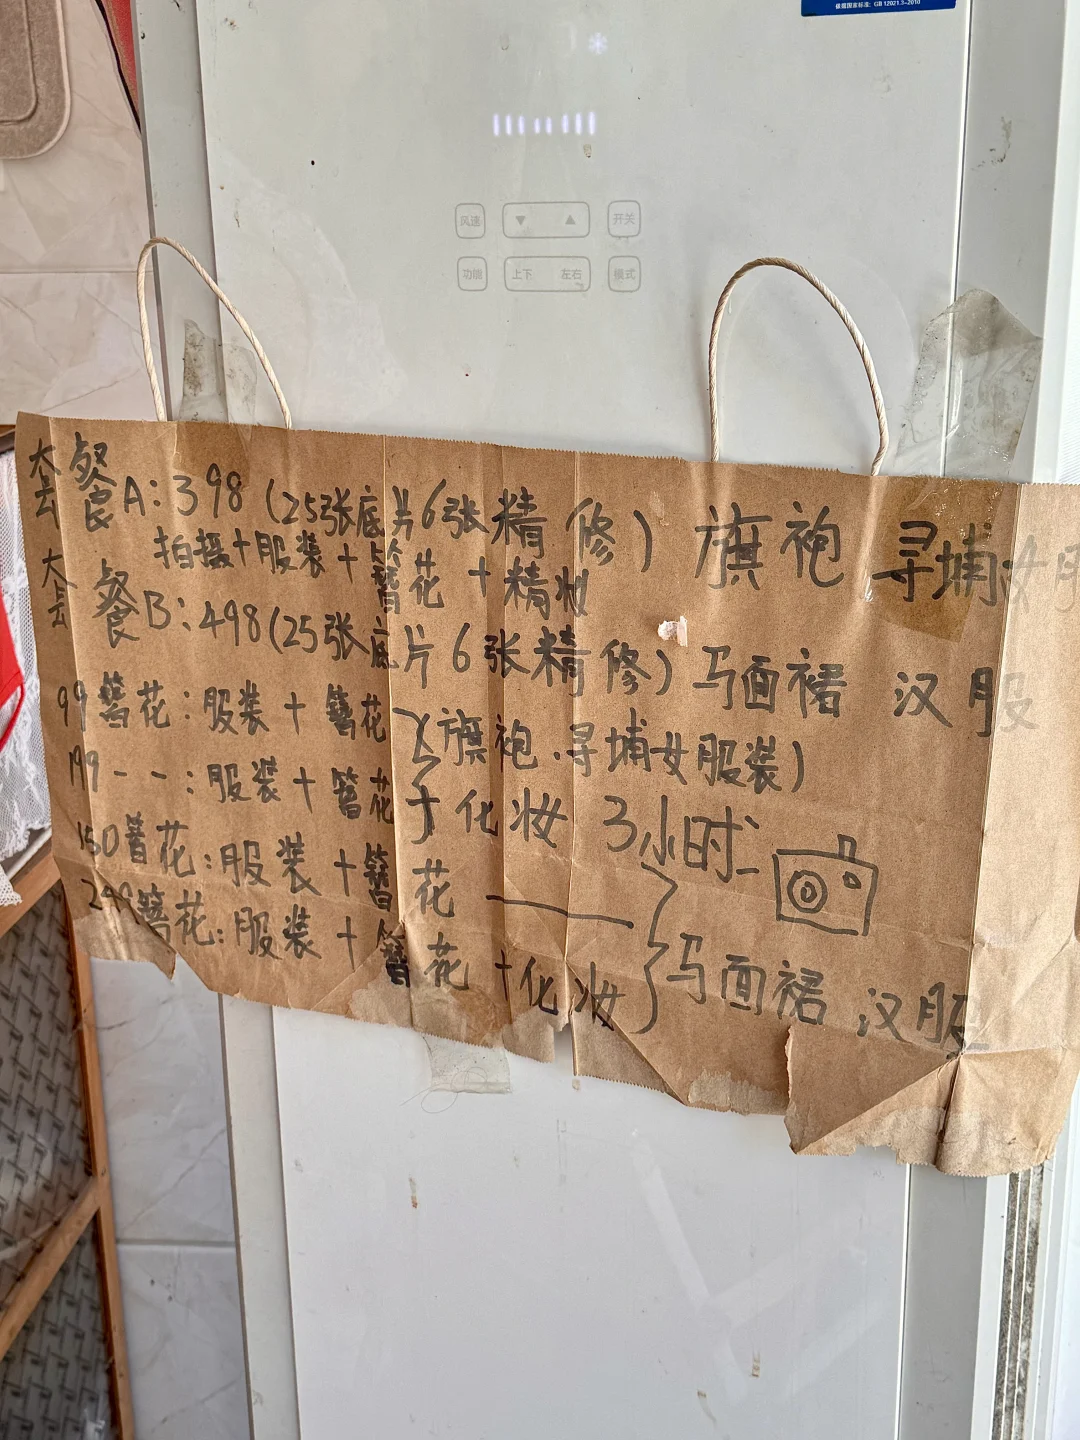 依据国家标准：GB 12021.3-2010
风速 ▼ ▲ 开关
功能 上下 左右 模式
套餐A：398（25张底片6张精修）旗袍 寻埔女服
拍摄+服装+簪花+精妆
套餐B：498（25张底片6张精修）马面裙 汉服
99簪花：服装+簪花 （旗袍.寻埔女服装）
199--：服装+簪花+化妆 3小时
150簪花：服装+簪花
簪花：服装+簪花+化妆 }马面裙 汉服